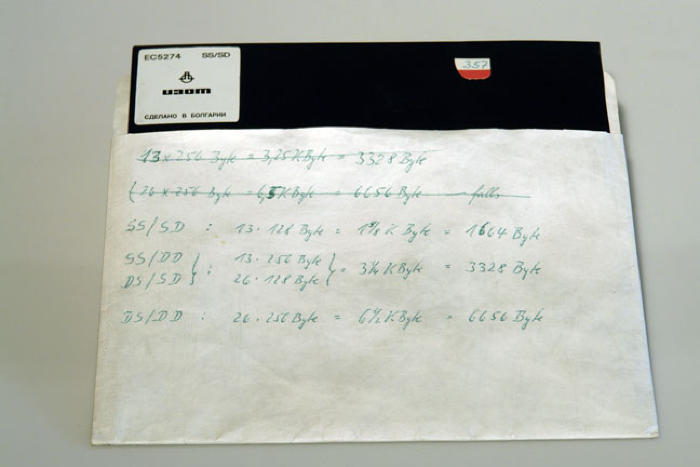 EC5274 SS/SD
ИЗОТ
СДЕЛАНО В БОЛГАРИИ
357
13 x 256 Byte = 3,25 KByte = 3328 Byte
(26 x 256 Byte = 6,5 KByte = 6656 Byte — falls
SS/SD : 13 · 128 Byte = 1⅝ K Byte = 1664 Byte
SS/DD } : 13 · 256 Byte } = 3¼ KByte = 3328 Byte
DS/SD } 26 · 128 Byte }
DS/DD : 26 · 256 Byte = 6½ KByte = 6656 Byte